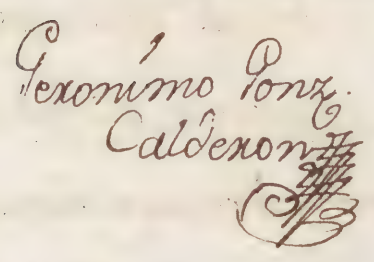 Geronimo Gonz.
Calderon